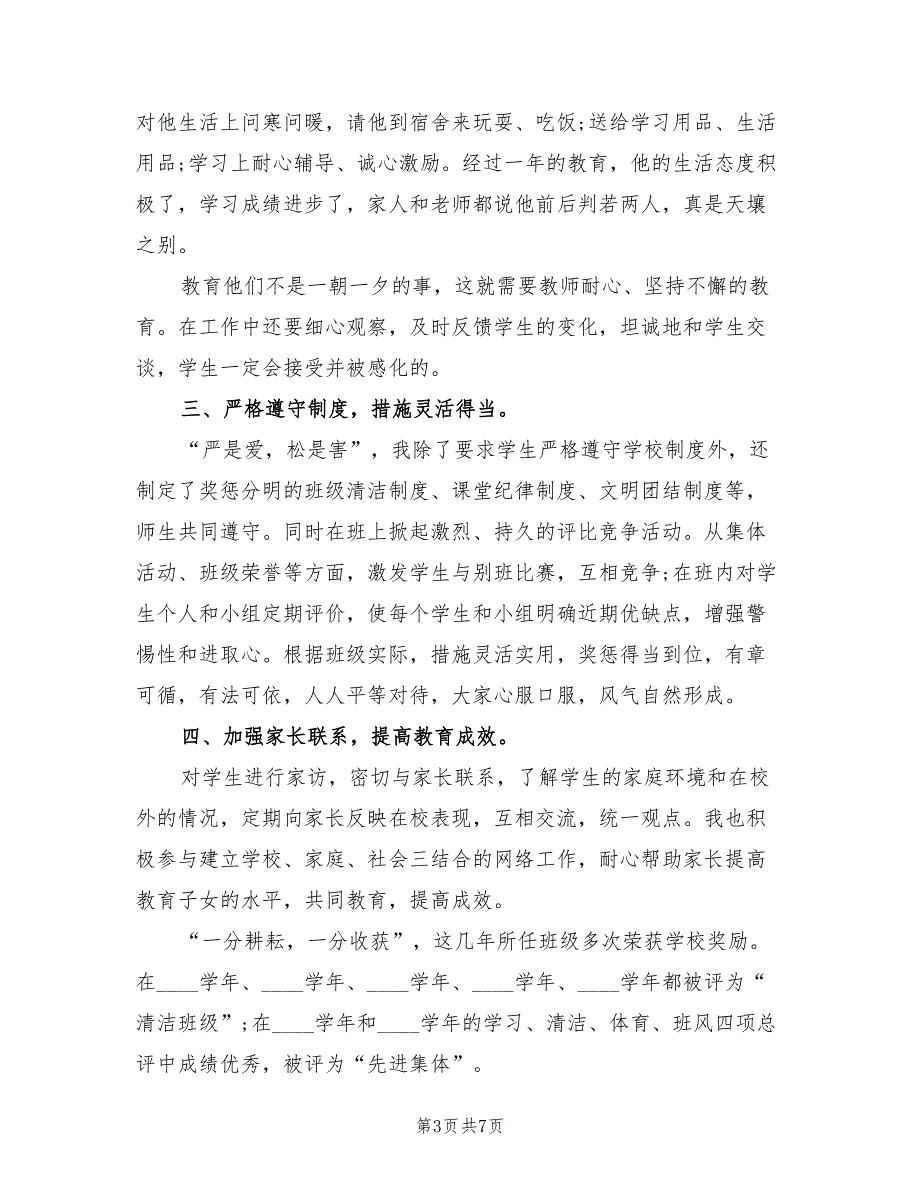 对他生活上问寒问暖，请他到宿舍来玩耍、吃饭;送给学习用品、生活
用品;学习上耐心辅导、诚心激励。经过一年的教育，他的生活态度积
极了，学习成绩进步了，家人和老师都说他前后判若两人，真是天壤
之别。
教育他们不是一朝一夕的事，这就需要教师耐心、坚持不懈的教
育。在工作中还要细心观察，及时反馈学生的变化，坦诚地和学生交
谈，学生一定会接受并被感化的。
三、严格遵守制度，措施灵活得当。
“严是爱，松是害”，我除了要求学生严格遵守学校制度外，还
制定了奖惩分明的班级清洁制度、课堂纪律制度、文明团结制度等，
师生共同遵守。同时在班上掀起激烈、持久的评比竞争活动。从集体
活动、班级荣誉等方面，激发学生与别班比赛，互相竞争;在班内对学
生个人和小组定期评价，使每个学生和小组明确近期优缺点，增强警
惕性和进取心。根据班级实际，措施灵活实用，奖惩得当到位，有章
可循，有法可依，人人平等对待，大家心服口服，风气自然形成。
四、加强家长联系，提高教育成效。
对学生进行家访，密切与家长联系，了解学生的家庭环境和在校
外的情况，定期向家长反映在校表现，互相交流，统一观点。我也积
极参与建立学校、家庭、社会三结合的网络工作，耐心帮助家长提高
教育子女的水平，共同教育，提高成效。
“一分耕耘，一分收获”，这几年所任班级多次荣获学校奖励。
在____学年、____学年、____学年、____学年、____学年都被评为“
清洁班级”;在____学年和____学年的学习、清洁、体育、班风四项总
评中成绩优秀，被评为“先进集体”。
第3页共7页